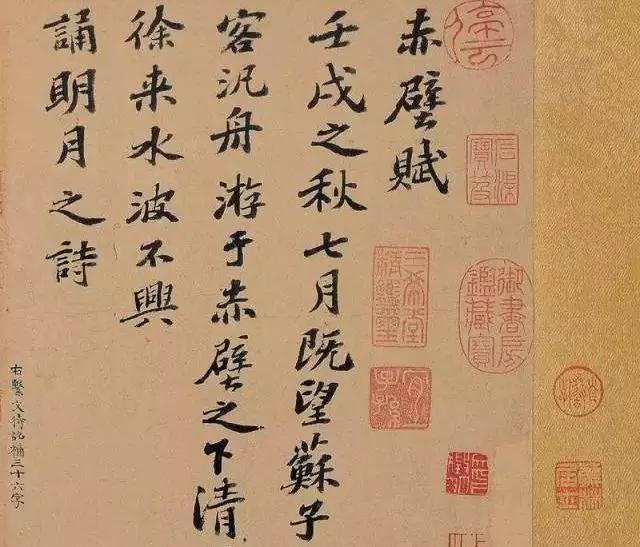 赤壁賦
壬戌之秋七月既望蘇子
客汎舟游于赤壁之下清
徐来水波不興
誦明月之詩
右繫文待詔補三十六字
石渠寶笈
御書房鑑藏寶
三希堂精鑑璽
宜子孫